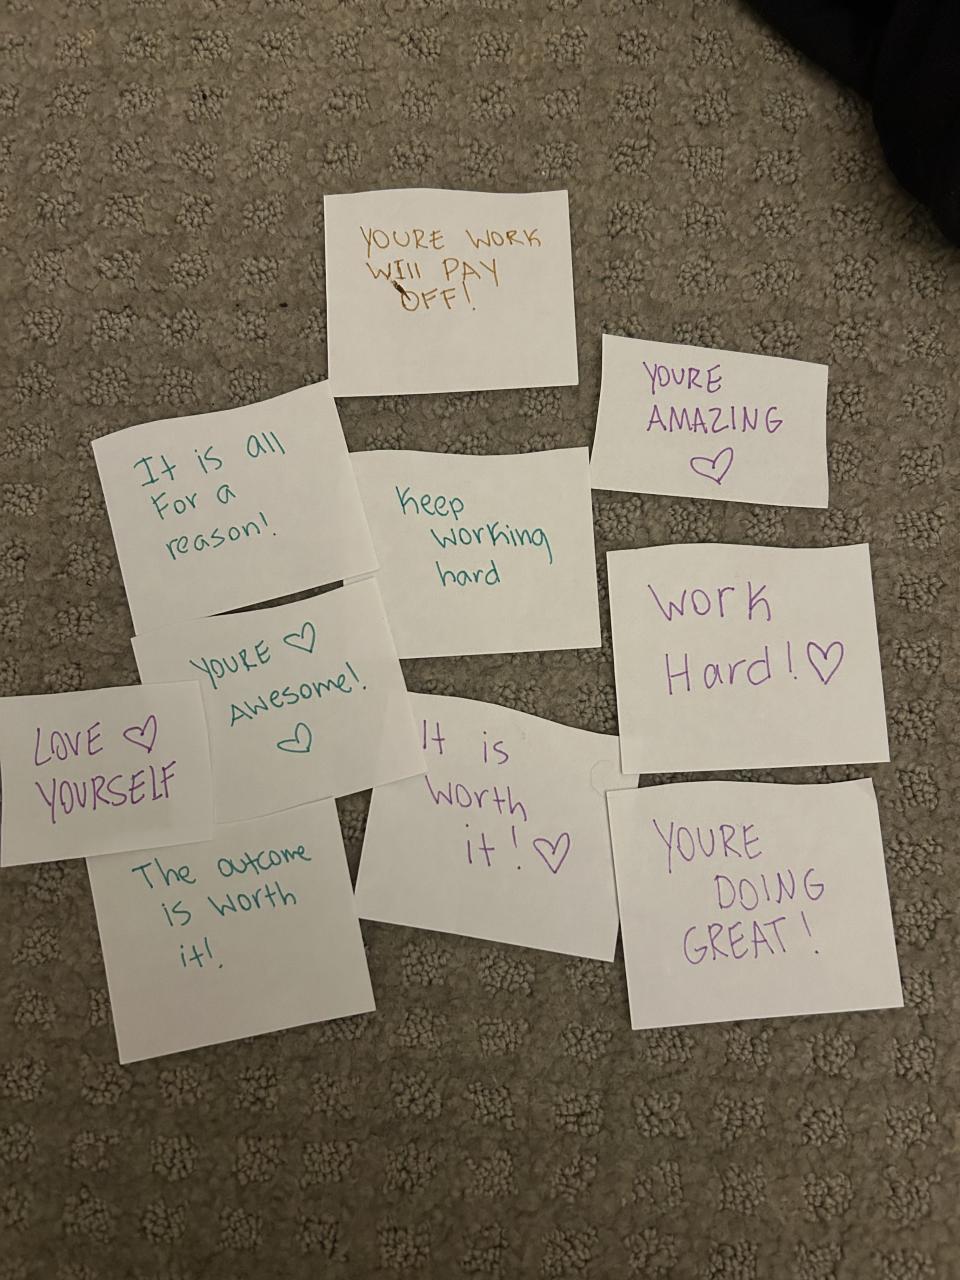 YOURE WORK
WIll PAY
OFF!
YOURE
AMAZING
It is all
For a
reason!
Keep
working
hard
Work
Hard!
YOURE
Awesome!
LOVE
YOURSELF
It is
Worth
it!
The outcome
is worth
it!
YOURE
DOING
GREAT!